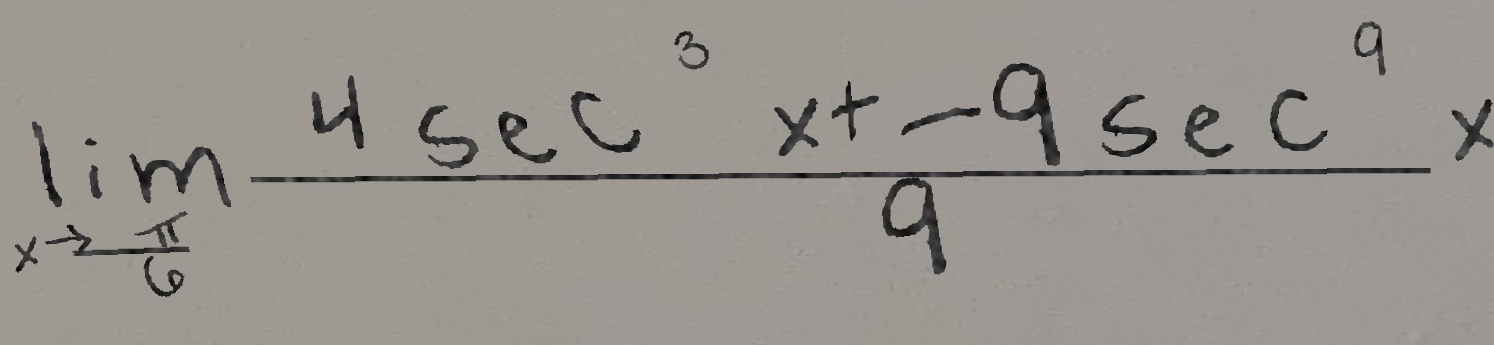 lim x→π/6 (4 sec³ x + -9 sec⁹ x)/9